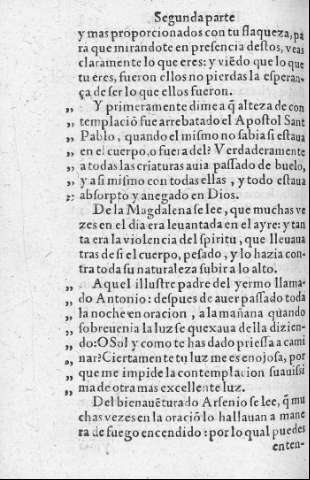 Segunda parte
y mas proporcionados con tu flaqueza, pa
ra que mirandote en presencia destos, veas
claramente lo que eres: y viẽdo que lo que
tu eres, fueron ellos no pierdas la esperan-
ça de ser lo que ellos fueron.
,, Y primeramente dime a q̃ alteza de con
,, templaciõ fue arrebatado el Apostol Sant
,, Pablo, quando el mismo no sabia si estaua
,, en el cuerpo, o fuera del? Verdaderamente
,, a todas las criaturas auia passado de buelo,
,, y asi mismo con todas ellas, y todo estaua
,, absorpto y anegado en Dios.
De la Magdalena se lee, que muchas ve
zes en el dia era leuantada en el ayre: y tan
ta era la violencia del spiritu, que lleuaua
tras de si el cuerpo, pesado, y lo hazia con-
tra toda su naturaleza subir a lo alto.
,, Aquel illustre padre del yermo llama-
,, do Antonio: despues de auer passado toda
,, la noche en oracion, a la mañana quando
,, sobreuenia la luz se quexaua della dizien-
,, do: O Sol y como te has dado priessa a cami
,, nar? Ciertamente tu luz me es enojosa, por
,, que me impide la contemplacion suauissi
,, ma de otra mas excellente luz.
Del bienauẽturado Arsenio se lee, q̃ mu
chas vezes en la oraciõ lo hallauan a mane
ra de fuego encendido: por lo qual puedes
enten-